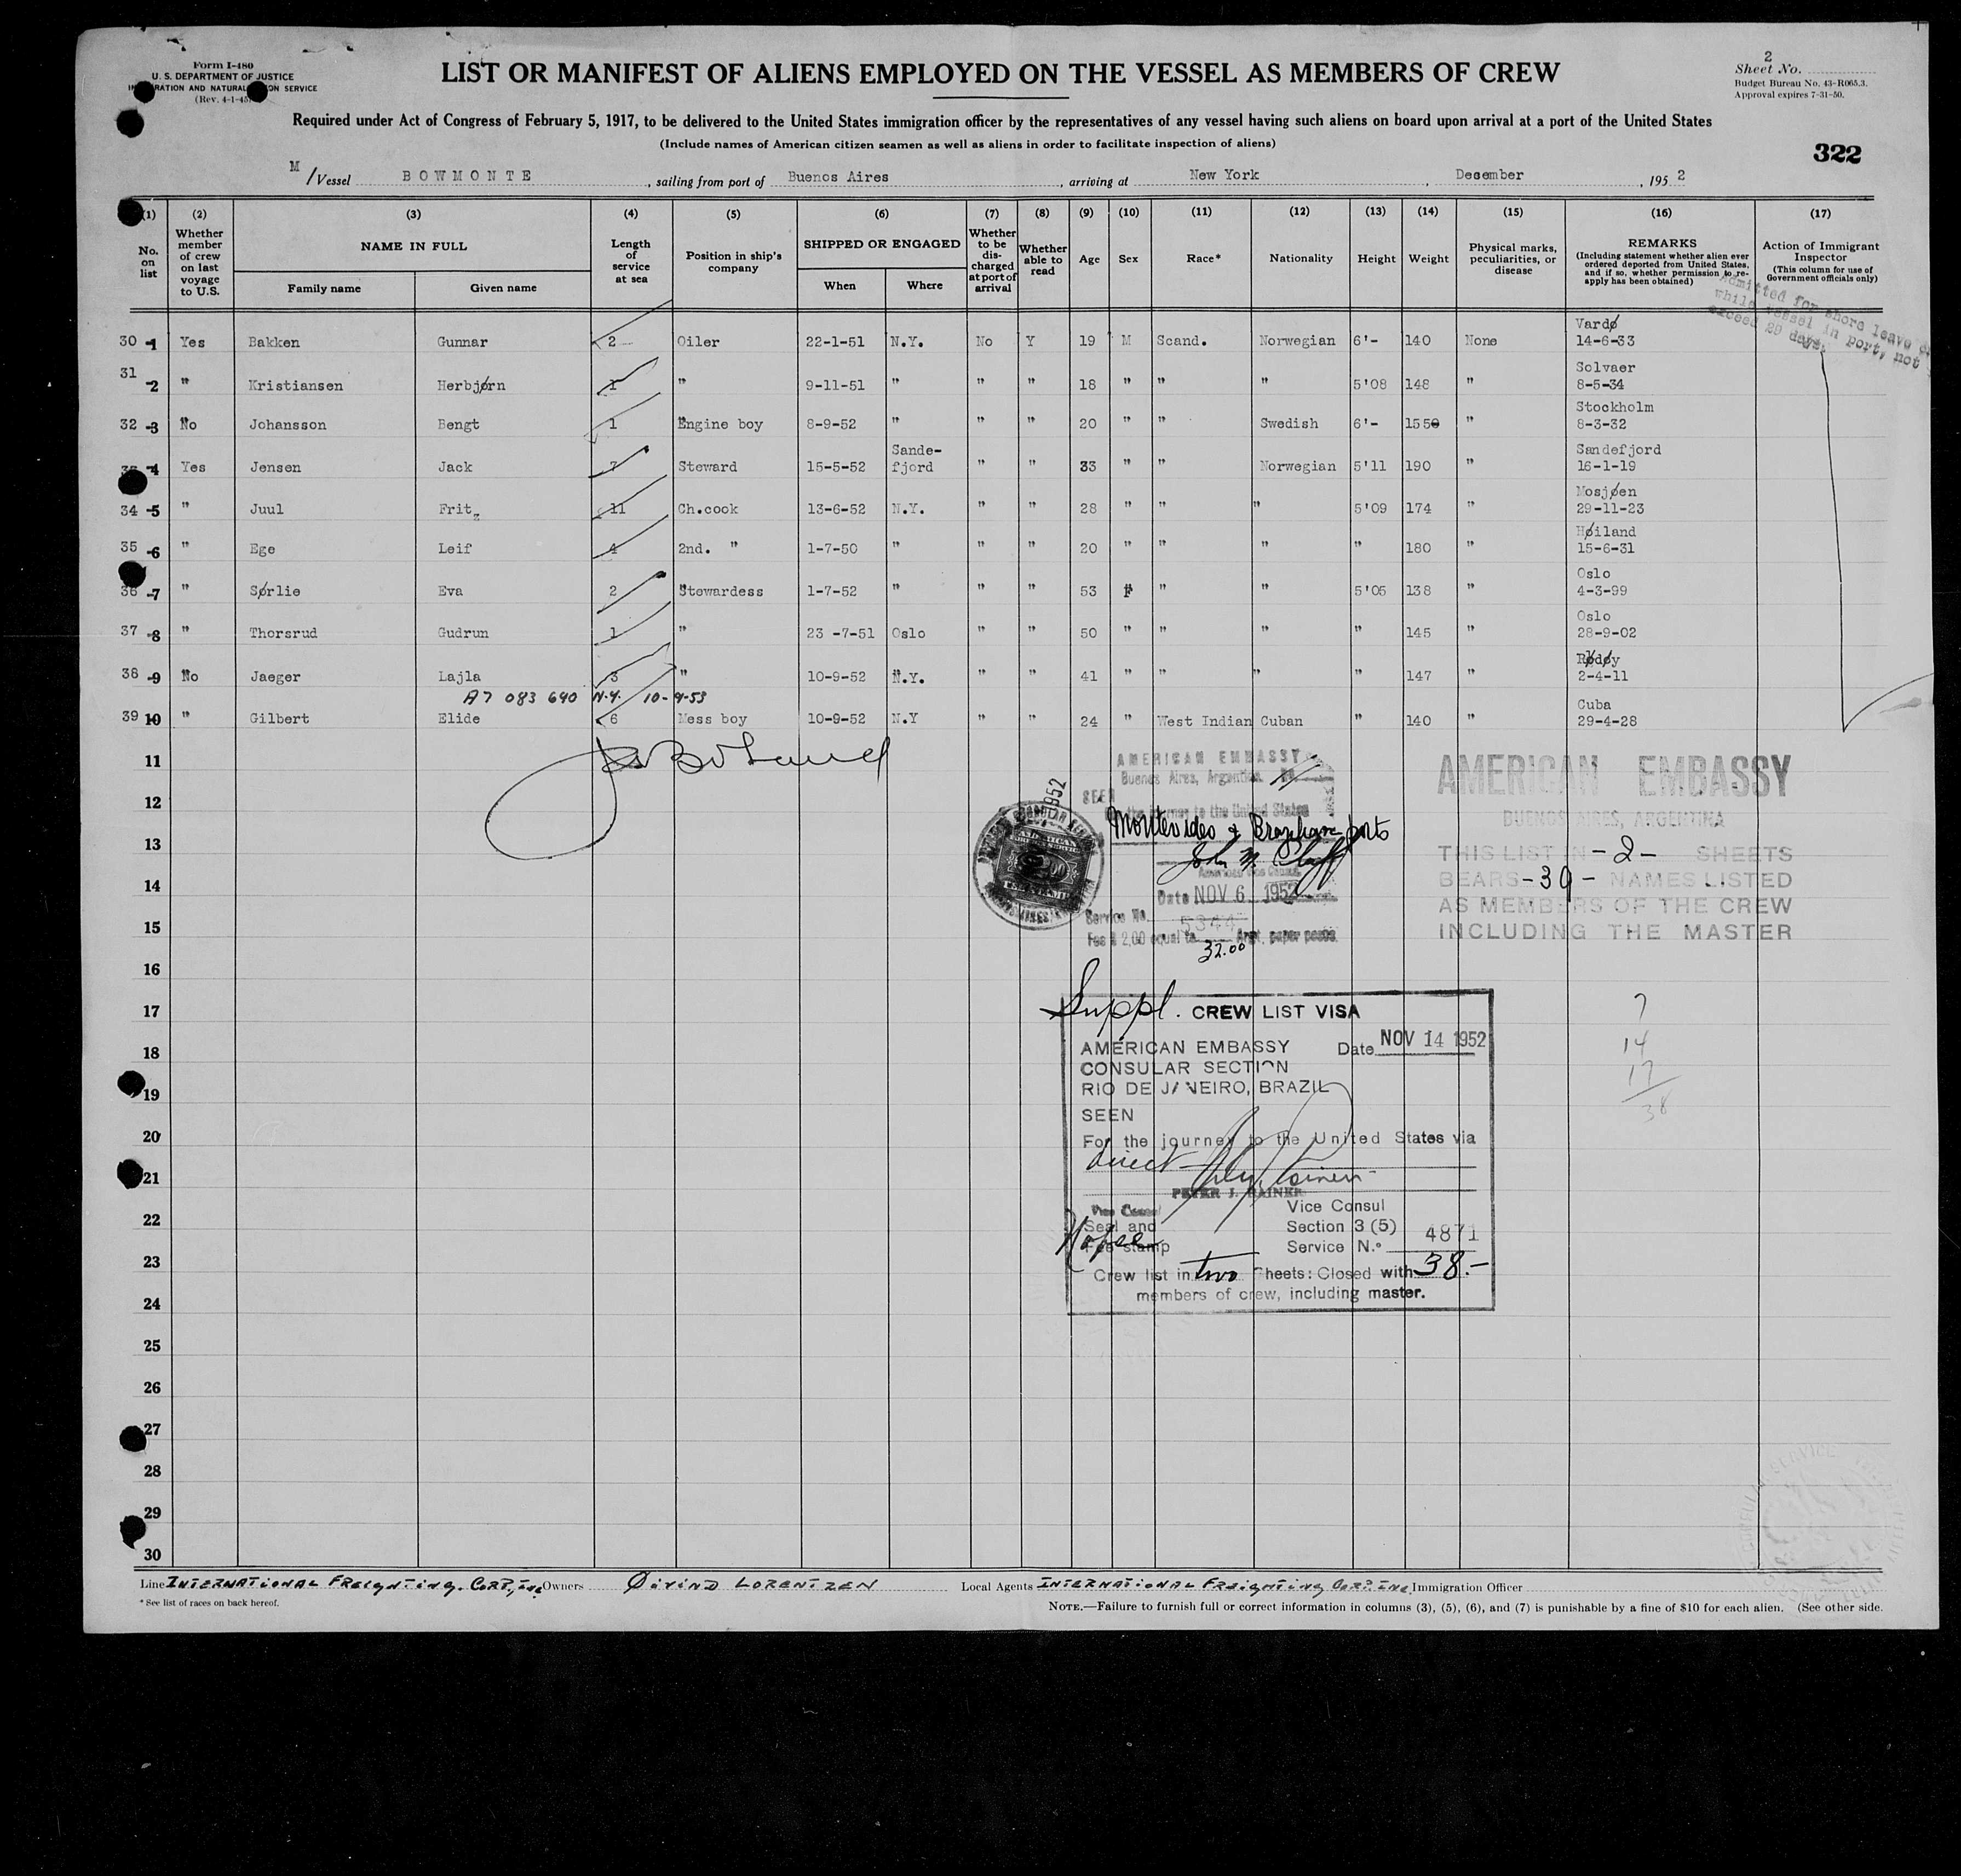 Form I-480
U. S. DEPARTMENT OF JUSTICE
IMMIGRATION AND NATURALIZATION SERVICE
(Rev. 4-1-45)
LIST OR MANIFEST OF ALIENS EMPLOYED ON THE VESSEL AS MEMBERS OF CREW
2
Sheet No.
Budget Bureau No. 43-R065.3.
Approval expires 7-31-50.
Required under Act of Congress of February 5, 1917, to be delivered to the United States immigration officer by the representatives of any vessel having such aliens on board upon arrival at a port of the United States
(Include names of American citizen seamen as well as aliens in order to facilitate inspection of aliens)
322
M/Vessel BOWMONTE, sailing from port of Buenos Aires, arriving at New York, Desember, 1952
(1) (2) (3) (4) (5) (6) (7) (8) (9) (10) (11) (12) (13) (14) (15) (16) (17)
No. on list
Whether member of crew on last voyage to U.S.
NAME IN FULL
Family name Given name
Length of service at sea
Position in ship's company
SHIPPED OR ENGAGED
When Where
Whether to be discharged at port of arrival
Whether able to read
Age
Sex
Race*
Nationality
Height
Weight
Physical marks, peculiarities, or disease
REMARKS
(Including statement whether alien ever ordered deported from United States, and if so, whether permission to re-apply has been obtained)
Action of Immigrant Inspector
(This column for use of Government officials only)
Admitted for shore leave
while vessel in port, not
exceed 29 days.
Vardø
30 1 Yes Bakken Gunnar 2 Oiler 22-1-51 N.Y. No Y 19 M Scand. Norwegian 6'- 140 None 14-6-33
Solvaer
31 2 " Kristiansen Herbjørn 1 " 9-11-51 " " " 18 " " " 5'08 148 " 8-5-34
Stockholm
32 3 No Johansson Bengt 1 Engine boy 8-9-52 " " " 20 " " Swedish 6'- 155 " 8-3-32
Sandefjord
33 4 Yes Jensen Jack 7 Steward 15-5-52 Sande-fjord " " 33 " " Norwegian 5'11 190 " 16-1-19
Mosjøen
34 5 " Juul Fritz 11 Ch.cook 13-6-52 N.Y. " " 28 " " " 5'09 174 " 29-11-23
Høiland
35 6 " Ege Leif 4 2nd. " 1-7-50 " " " 20 " " " " 180 " 15-6-31
Oslo
36 7 " Sørlie Eva 2 Stewardess 1-7-52 " " " 53 F " " 5'05 138 " 4-3-99
Oslo
37 8 " Thorsrud Gudrun 1 " 23 -7-51 Oslo " " 50 " " " " 145 " 28-9-02
Rødøy
38 9 No Jaeger Lajla 3 " 10-9-52 N.Y. " " 41 " " " " 147 " 2-4-11
A7 083 640 N.Y. 10-9-53
Cuba
39 10 " Gilbert Elide 6 Mess boy 10-9-52 N.Y " " 24 " West Indian Cuban " 140 " 29-4-28
11
12
13
14
15
16
17
18
19
20
21
22
23
24
25
26
27
28
29
30
AMERICAN EMBASSY
Buenos Aires, Argentina.
SEEN
the journey to the United States
Montevideo & Brazilian ports
American Vice Consul
Date NOV 6 1952
Service No. 5344
Fee $ 2.00 equal to 32.00 Arg. paper pesos.
AMERICAN EMBASSY
BUENOS AIRES, ARGENTINA
THIS LIST IN -2- SHEETS
BEARS -39- NAMES LISTED
AS MEMBERS OF THE CREW
INCLUDING THE MASTER
7
14
17
38
Suppl. CREW LIST VISA
AMERICAN EMBASSY Date NOV 14 1952
CONSULAR SECTION
RIO DE JANEIRO, BRAZIL
SEEN
For the journey to the United States via
direct
PETER J. RAINER
Vice Consul
Vice Consul
Seal and Section 3 (5)
No fee
Fee stamp Service N.º 4871
Crew list in two Sheets: Closed with 38.-
members of crew, including master.
Line INTERNATIONAL FREIGHTING CORP., INC. Owners ØIVIND LORENTZEN Local Agents INTERNATIONAL FREIGHTING CORP. INC. Immigration Officer
* See list of races on back hereof.
NOTE.—Failure to furnish full or correct information in columns (3), (5), (6), and (7) is punishable by a fine of $10 for each alien. (See other side.